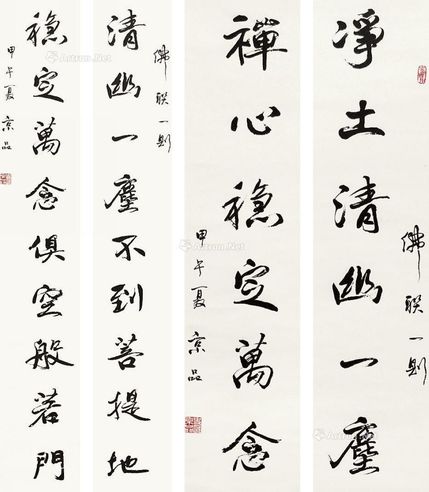 佛联一则
淨土清幽一塵
禪心穩定萬念
甲午夏京品
佛联一则
清幽一塵不到菩提地
穩定萬念俱空般若門
甲午夏京品
Artron.Net
Artron.Net
Artron.Net